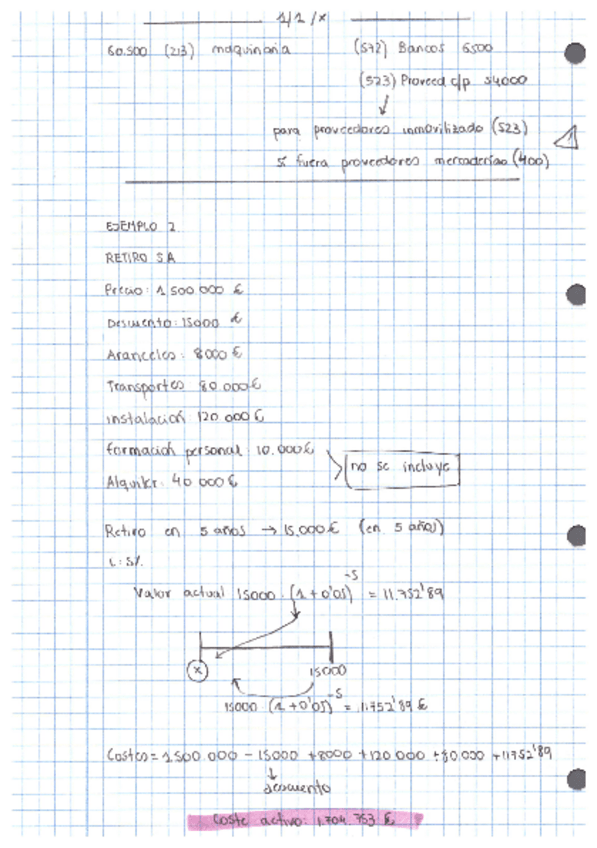 1/1/x
60.500 (213) maquinaria (572) Bancos 6500
(523) Proveed c/p 54000
para proveedores inmovilizado (523)
Si fuera proveedores mercaderías (400)
EJEMPLO 2
RETIRO SA
Precio: 1 500 000 €
Descuento: 15000 €
Aranceles: 8000 €
Transportes 80.000€
instalación 120 000€
formación personal 10.000€
no se incluye
Alquiler: 40 000€
Retiro en 5 años → 15.000€ (en 5 años)
i: 5%
Valor actual 15000 · (1 + 0'05)^-5 = 11.752'89
x 15000
15000 (1+0'05)^-5 = 11.752'89 €
Costes = 1.500.000 - 15000 + 8000 + 120.000 + 80.000 + 11752'89
descuento
Coste activo: 1.704.753 €